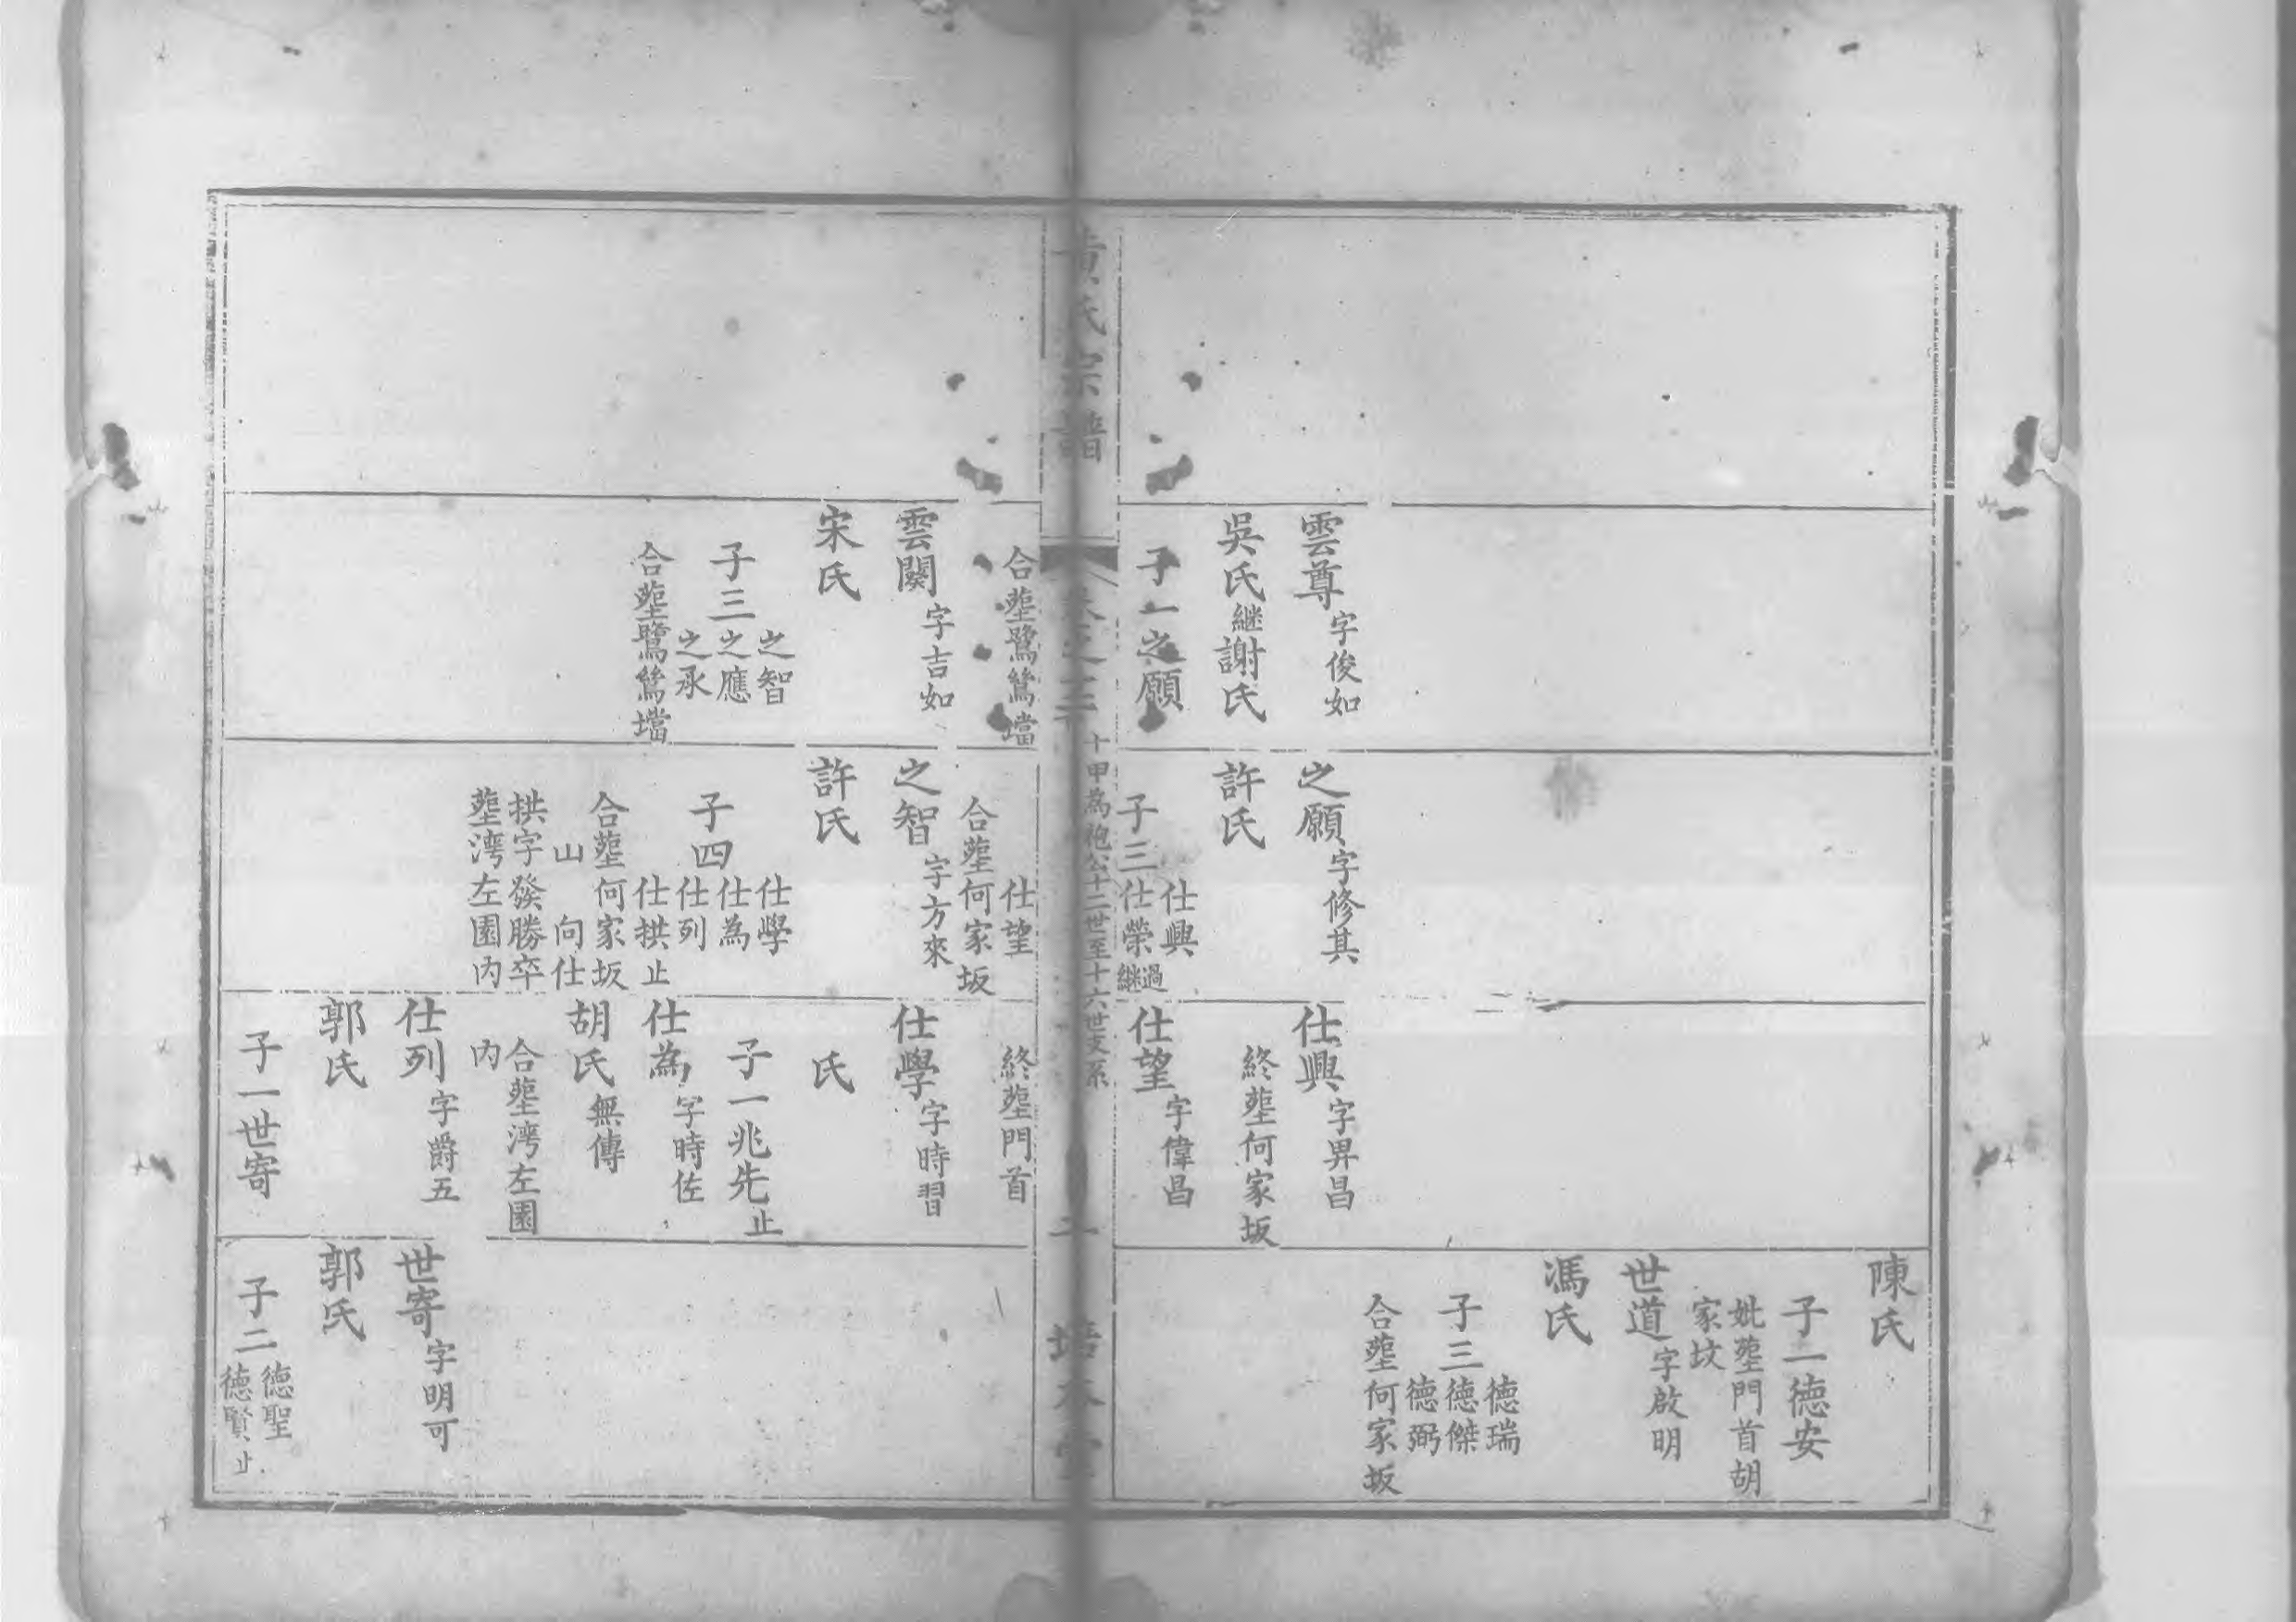 陳氏
子一德安
妣塟門首胡
家坟
世道字啟明
馮氏
子三德瑞
德傑
德弼
合塟何家坂
雲尊字俊如
吳氏継謝氏
子一之願
之願字修其
許氏
子三仕興
仕榮過継
仕興字昇昌
終塟何家坂
仕望字偉昌
黄氏宗譜
卷之三
十甲為袍公十二世至十六世支系
二
培本堂
合塟鷺鷥壋
雲闋字吉如
宋氏
子三之智
之應
之承
合塟鷺鷥壋
仕望
合塟何家坂
之智字方來
許氏
子四仕學
仕為
仕列
仕拱止
合塟何家坂
山向仕
拱字發勝卒
塟湾左園內
終塟門首
仕學字時習
氏
子一兆先止
仕為字時佐
胡氏無傳
合塟湾左園
內
仕列字爵五
郭氏
子一世寄
世寄字明可
郭氏
子二德聖
德賢止